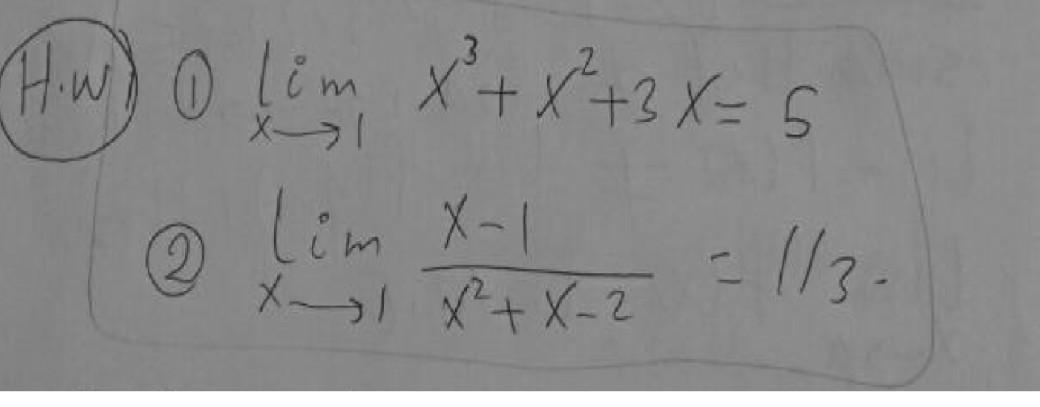 H.W) ① lim x→1 x³ + x² + 3x = 5
② lim x→1 (x-1)/(x² + x - 2) = 1/3.